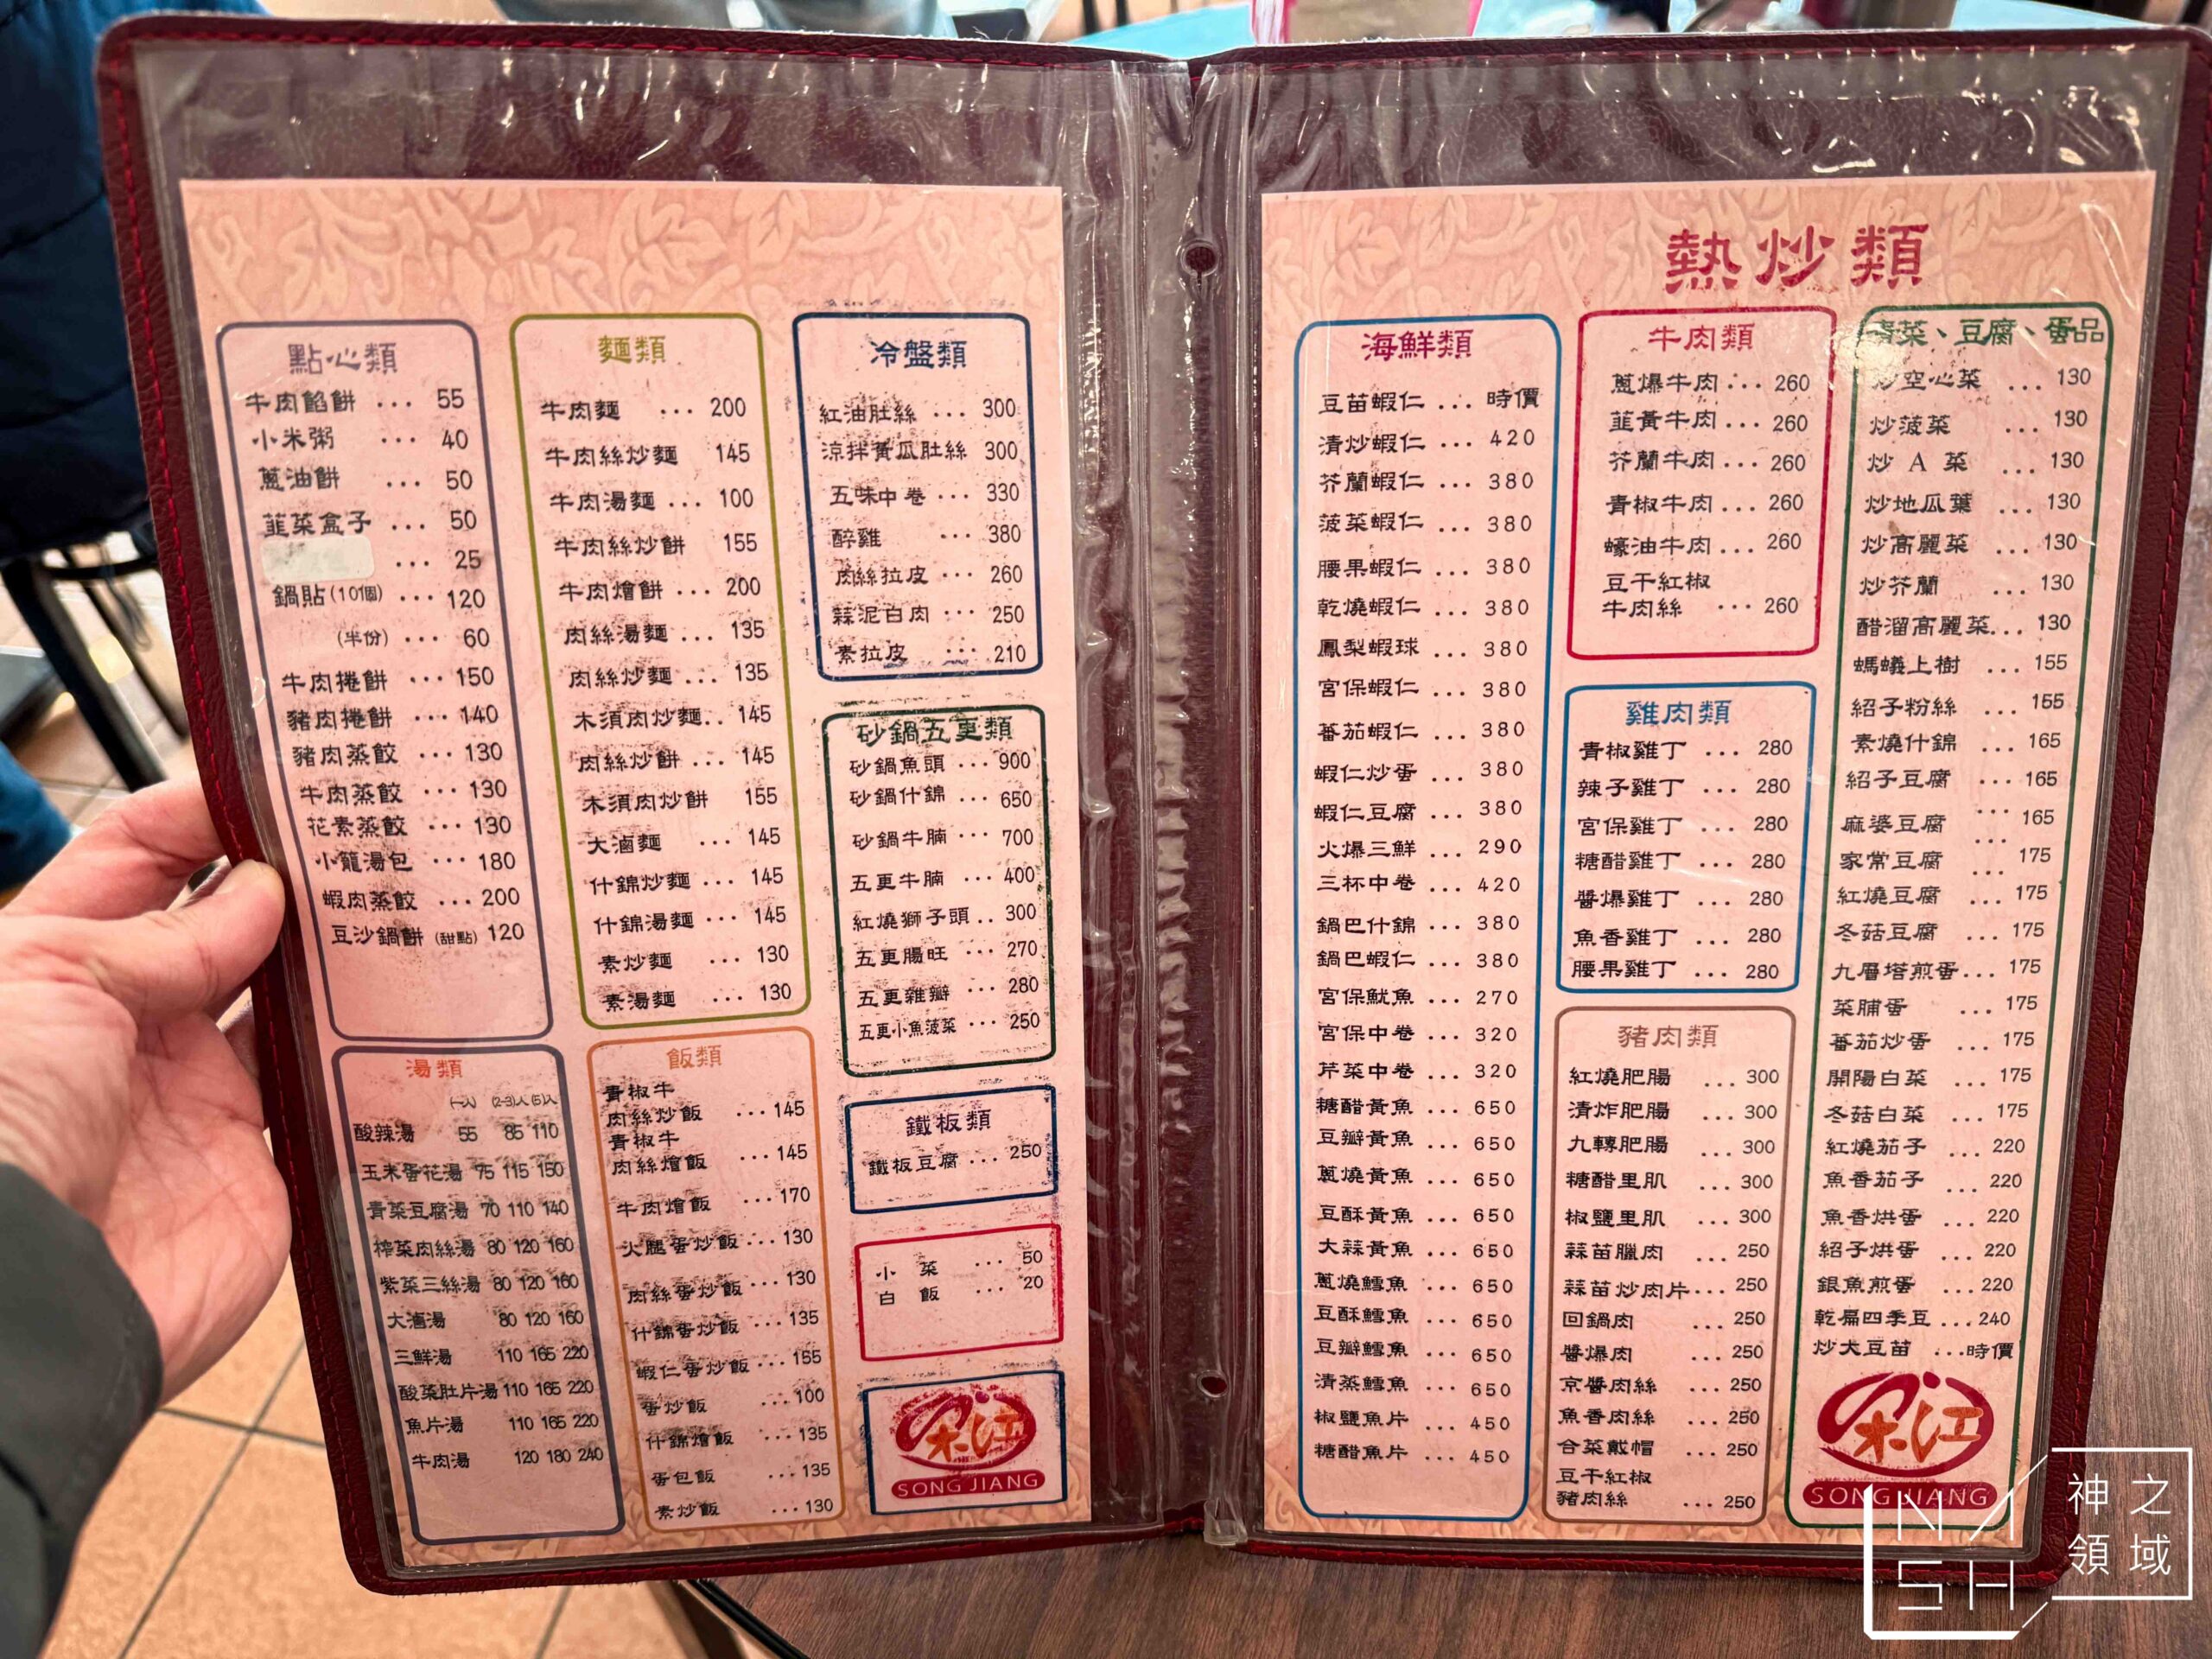 點心類
牛肉餡餅 ... 55
小米粥 ... 40
蔥油餅 ... 50
韮菜盒子 ... 50
... 25
鍋貼(10個) ... 120
(半份) ... 60
牛肉捲餅 ... 150
豬肉捲餅 ... 140
豬肉蒸餃 ... 130
牛肉蒸餃 ... 130
花素蒸餃 ... 130
小籠湯包 ... 180
蝦肉蒸餃 ... 200
豆沙鍋餅(甜點) 120
湯類
(一人) (2-3)人 (5)人
酸辣湯 55 85 110
玉米蛋花湯 75 115 150
青菜豆腐湯 70 110 140
榨菜肉絲湯 80 120 160
紫菜三絲湯 80 120 160
大滷湯 80 120 160
三鮮湯 110 165 220
酸菜肚片湯 110 165 220
魚片湯 110 165 220
牛肉湯 120 180 240
麵類
牛肉麵 ... 200
牛肉絲炒麵 145
牛肉湯麵 ... 100
牛肉絲炒餅 155
牛肉燴餅 ... 200
肉絲湯麵 ... 135
肉絲炒麵 ... 135
木須肉炒麵.. 145
肉絲炒餅 ... 145
木須肉炒餅 155
大滷麵 ... 145
什錦炒麵 ... 145
什錦湯麵 ... 145
素炒麵 ... 130
素湯麵 ... 130
飯類
青椒牛
肉絲炒飯 ... 145
青椒牛
肉絲燴飯 ... 145
牛肉燴飯 ... 170
火腿蛋炒飯 ... 130
肉絲蛋炒飯 ... 130
什錦蛋炒飯 ... 135
蝦仁蛋炒飯 ... 155
蛋炒飯 ... 100
什錦燴飯 ... 135
蛋包飯 ... 135
素炒飯 ... 130
冷盤類
紅油肚絲 ... 300
涼拌黃瓜肚絲 300
五味中卷 ... 330
醉雞 ... 380
肉絲拉皮 ... 260
蒜泥白肉 ... 250
素拉皮 ... 210
砂鍋五更類
砂鍋魚頭 ... 900
砂鍋什錦 ... 650
砂鍋牛腩 ... 700
五更牛腩 ... 400
紅燒獅子頭 .. 300
五更腸旺 ... 270
五更雜瓣 ... 280
五更小魚菠菜 ... 250
鐵板類
鐵板豆腐 ... 250
小 菜 ... 50
白 飯 ... 20
宋江
SONG JIANG
熱炒類
海鮮類
豆苗蝦仁 ... 時價
清炒蝦仁 ... 420
芥蘭蝦仁 ... 380
菠菜蝦仁 ... 380
腰果蝦仁 ... 380
乾燒蝦仁 ... 380
鳳梨蝦球 ... 380
宮保蝦仁 ... 380
蕃茄蝦仁 ... 380
蝦仁炒蛋 ... 380
蝦仁豆腐 ... 380
火爆三鮮 ... 290
三杯中卷 ... 420
鍋巴什錦 ... 380
鍋巴蝦仁 ... 380
宮保魷魚 ... 270
宮保中卷 ... 320
芹菜中卷 ... 320
糖醋黃魚 ... 650
豆瓣黃魚 ... 650
蔥燒黃魚 ... 650
豆酥黃魚 ... 650
大蒜黃魚 ... 650
蔥燒鱈魚 ... 650
豆酥鱈魚 ... 650
豆瓣鱈魚 ... 650
清蒸鱈魚 ... 650
椒鹽魚片 ... 450
糖醋魚片 ... 450
牛肉類
蔥爆牛肉 ... 260
韮黃牛肉 ... 260
芥蘭牛肉 ... 260
青椒牛肉 ... 260
蠔油牛肉 ... 260
豆干紅椒
牛肉絲 ... 260
雞肉類
青椒雞丁 ... 280
辣子雞丁 ... 280
宮保雞丁 ... 280
糖醋雞丁 ... 280
醬爆雞丁 ... 280
魚香雞丁 ... 280
腰果雞丁 ... 280
豬肉類
紅燒肥腸 ... 300
清炸肥腸 ... 300
九轉肥腸 ... 300
糖醋里肌 ... 300
椒鹽里肌 ... 300
蒜苗臘肉 ... 250
蒜苗炒肉片 ... 250
回鍋肉 ... 250
醬爆肉 ... 250
京醬肉絲 ... 250
魚香肉絲 ... 250
合菜戴帽 ... 250
豆干紅椒
豬肉絲 ... 250
青菜、豆腐、蛋品
炒空心菜 ... 130
炒菠菜 ... 130
炒 A 菜 ... 130
炒地瓜葉 ... 130
炒高麗菜 ... 130
炒芥蘭 ... 130
醋溜高麗菜... 130
螞蟻上樹 ... 155
紹子粉絲 ... 155
素燒什錦 ... 165
紹子豆腐 ... 165
麻婆豆腐 ... 165
家常豆腐 ... 175
紅燒豆腐 ... 175
冬菇豆腐 ... 175
九層塔煎蛋... 175
菜脯蛋 ... 175
蕃茄炒蛋 ... 175
開陽白菜 ... 175
冬菇白菜 ... 175
紅燒茄子 ... 220
魚香茄子 ... 220
魚香烘蛋 ... 220
紹子烘蛋 ... 220
銀魚煎蛋 ... 220
乾扁四季豆 ... 240
炒大豆苗 ... 時價
宋江
SONG JIANG
NASH
神之
領域